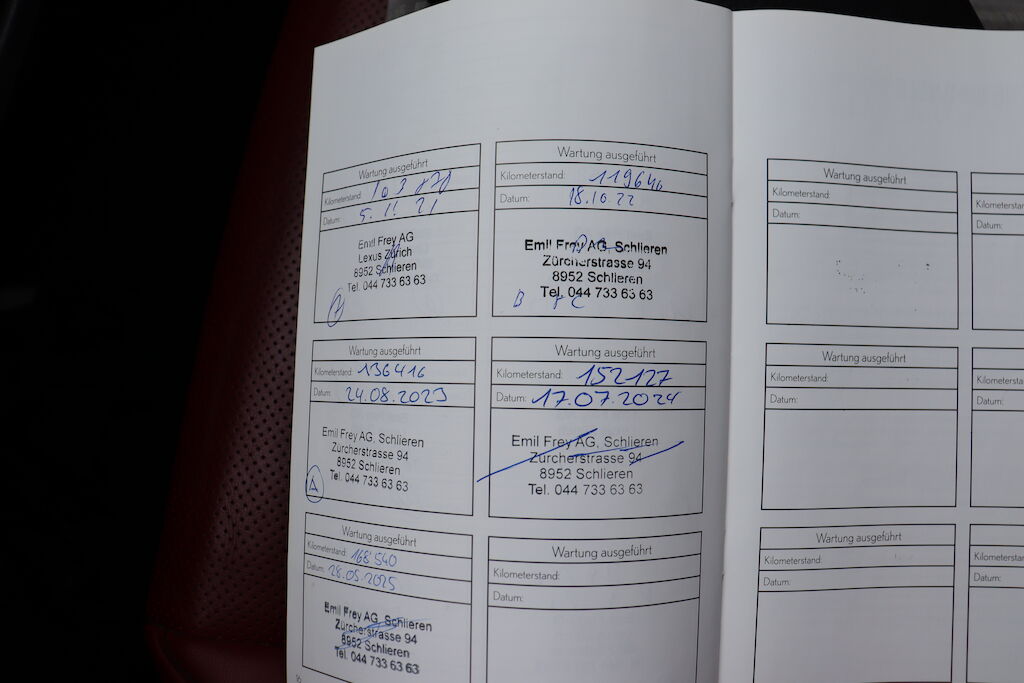 Wartung ausgeführt
Kilometerstand:
Datum: 5. 11. 21
Emil Frey AG
Lexus Zürich
8952 Schlieren
Tel. 044 733 63 63
Wartung ausgeführt
Kilometerstand: 119640
Datum: 18.10.22
Emil Frey AG, Schlieren
Zürcherstrasse 94
8952 Schlieren
Tel. 044 733 63 63
B
Wartung ausgeführt
Kilometerstand: 136416
Datum: 24.08.2023
Emil Frey AG, Schlieren
Zürcherstrasse 94
8952 Schlieren
Tel. 044 733 63 63
A
Wartung ausgeführt
Kilometerstand: 152127
Datum: 17.07.2024
Emil Frey AG, Schlieren
Zürcherstrasse 94
8952 Schlieren
Tel. 044 733 63 63
Wartung ausgeführt
Kilometerstand: 168'540
Datum: 28.05.2025
Emil Frey AG, Schlieren
Zürcherstrasse 94
8952 Schlieren
Tel. 044 733 63 63
Wartung ausgeführt
Kilometerstand:
Datum:
Wartung ausgeführt
Kilometerstand:
Datum:
Kilometerstand
Datum:
Wartung ausgeführt
Kilometerstand:
Datum:
Kilometerstand
Datum:
Wartung ausgeführt
Kilometerstand:
Datum:
Kilometerstand
Datum: